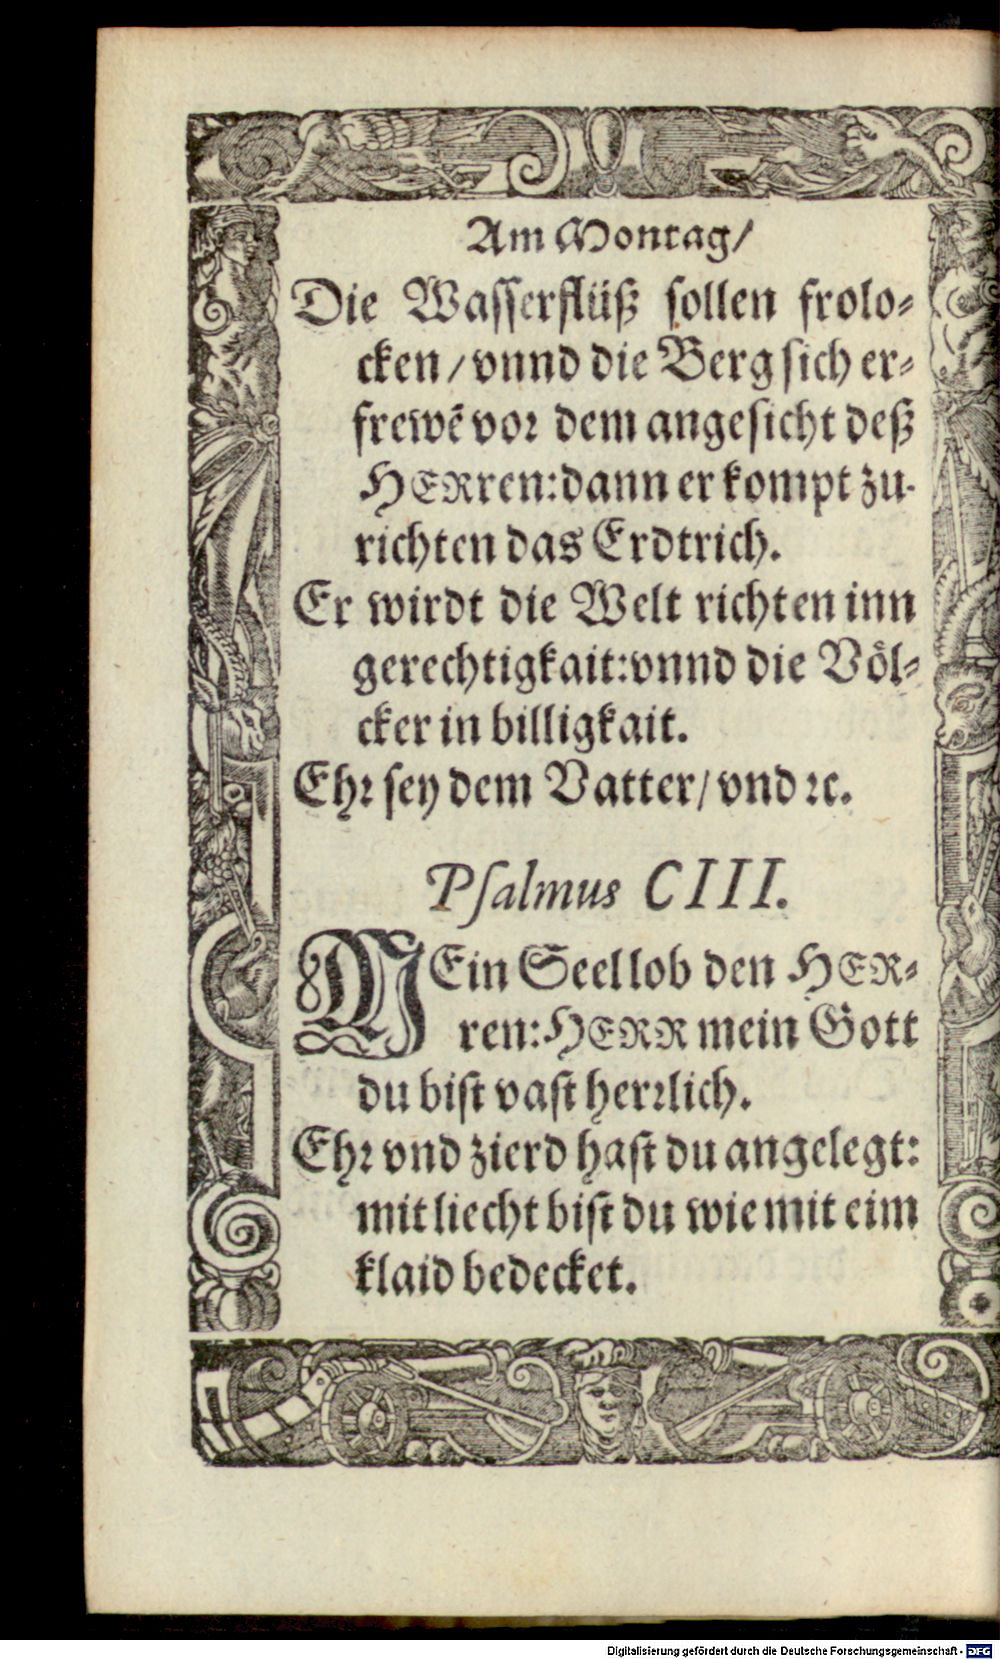 Am Montag/
Die Wasserflüß sollen frolo-
cken/vnnd die Berg sich er-
frewē vor dem angesicht deß
HERren:dann er kompt zu-
richten das Erdtrich.
Er wirdt die Welt richten inn
gerechtigkait:vnnd die Völ-
cker in billigkait.
Ehr sey dem Vatter/vnd ꝛc.
Psalmus CIII.
MEin Seel lob den HER-
ren:HERR mein Gott
du bist vast herrlich.
Ehr vnd zierd hast du angelegt:
mit liecht bist du wie mit eim
klaid bedecket.
Digitalisierung gefördert durch die Deutsche Forschungsgemeinschaft - DFG